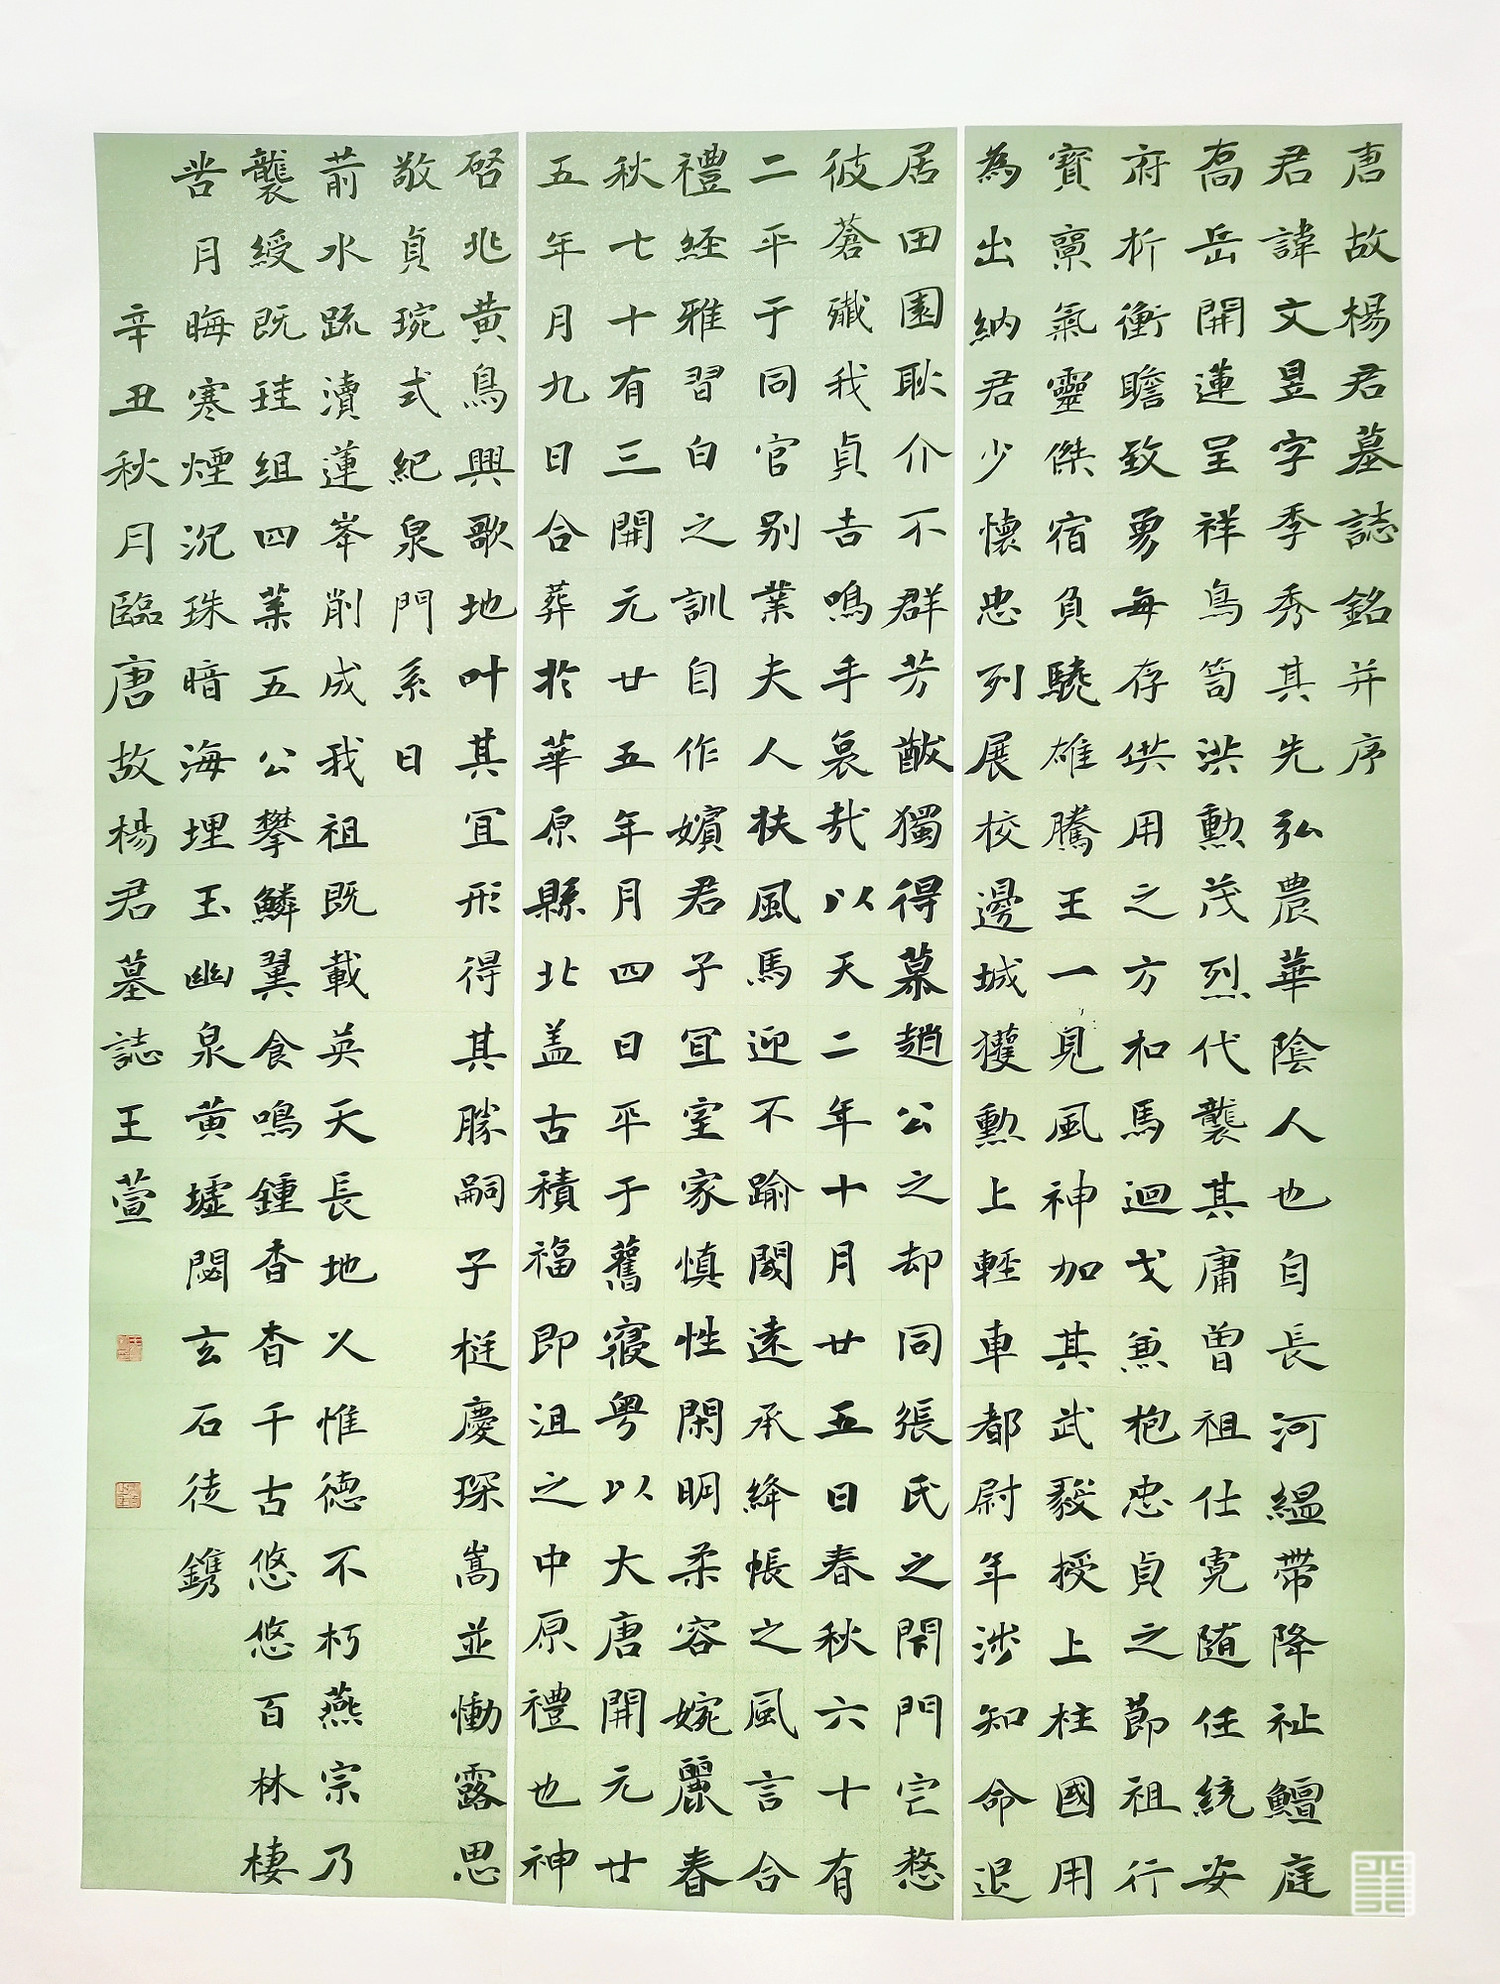 唐故楊君墓誌銘并序
君諱文昱字季秀其先弘農華陰人也自長河縕帶降祉鱣庭
喬岳開蓮呈祥鳥笥洪勳茂烈代襲其庸曽祖仕寬随任統安
府折衝瞻致勇每存供用之方和馬迴戈兼抱忠貞之節祖行
寶稟氣靈傑宿負驍雄騰王一見風神加其武毅授上柱國用
為出納君少懷忠列展校邊城獲勳上輕車都尉年涉知命退
居田園耿介不群芳猷獨得慕趙公之却同張氏之閈門空憗
彼蒼殱我貞吉鳴手哀哉以天二年十月廿五日春秋六十有
二平于同官别業夫人扶風馬迎不踰閾遠承絳帳之風言合
禮経雅習白之訓自作嬪君子宜室家慎性閑明柔容婉麗春
秋七十有三開元廿五年月四日平于舊寢粤以大唐開元廿
五年月九日合葬於華原縣北盖古積福即沮之中原禮也神
啓兆黄鳥興歌地叶其宜形得其勝嗣子梃慶琛嵩並慟露思
敬貞琬式紀泉門系日
前水疏瀆蓮峯削成我祖既載英天長地久惟德不朽燕宗乃
襲綬既珪組四葉五公攀鱗翼食鳴鍾杳杳千古悠悠百林棲
昔月晦寒煙沉珠暗海埋玉幽泉黄墟閟玄石徒鐫
辛丑秋月臨唐故楊君墓誌王萱